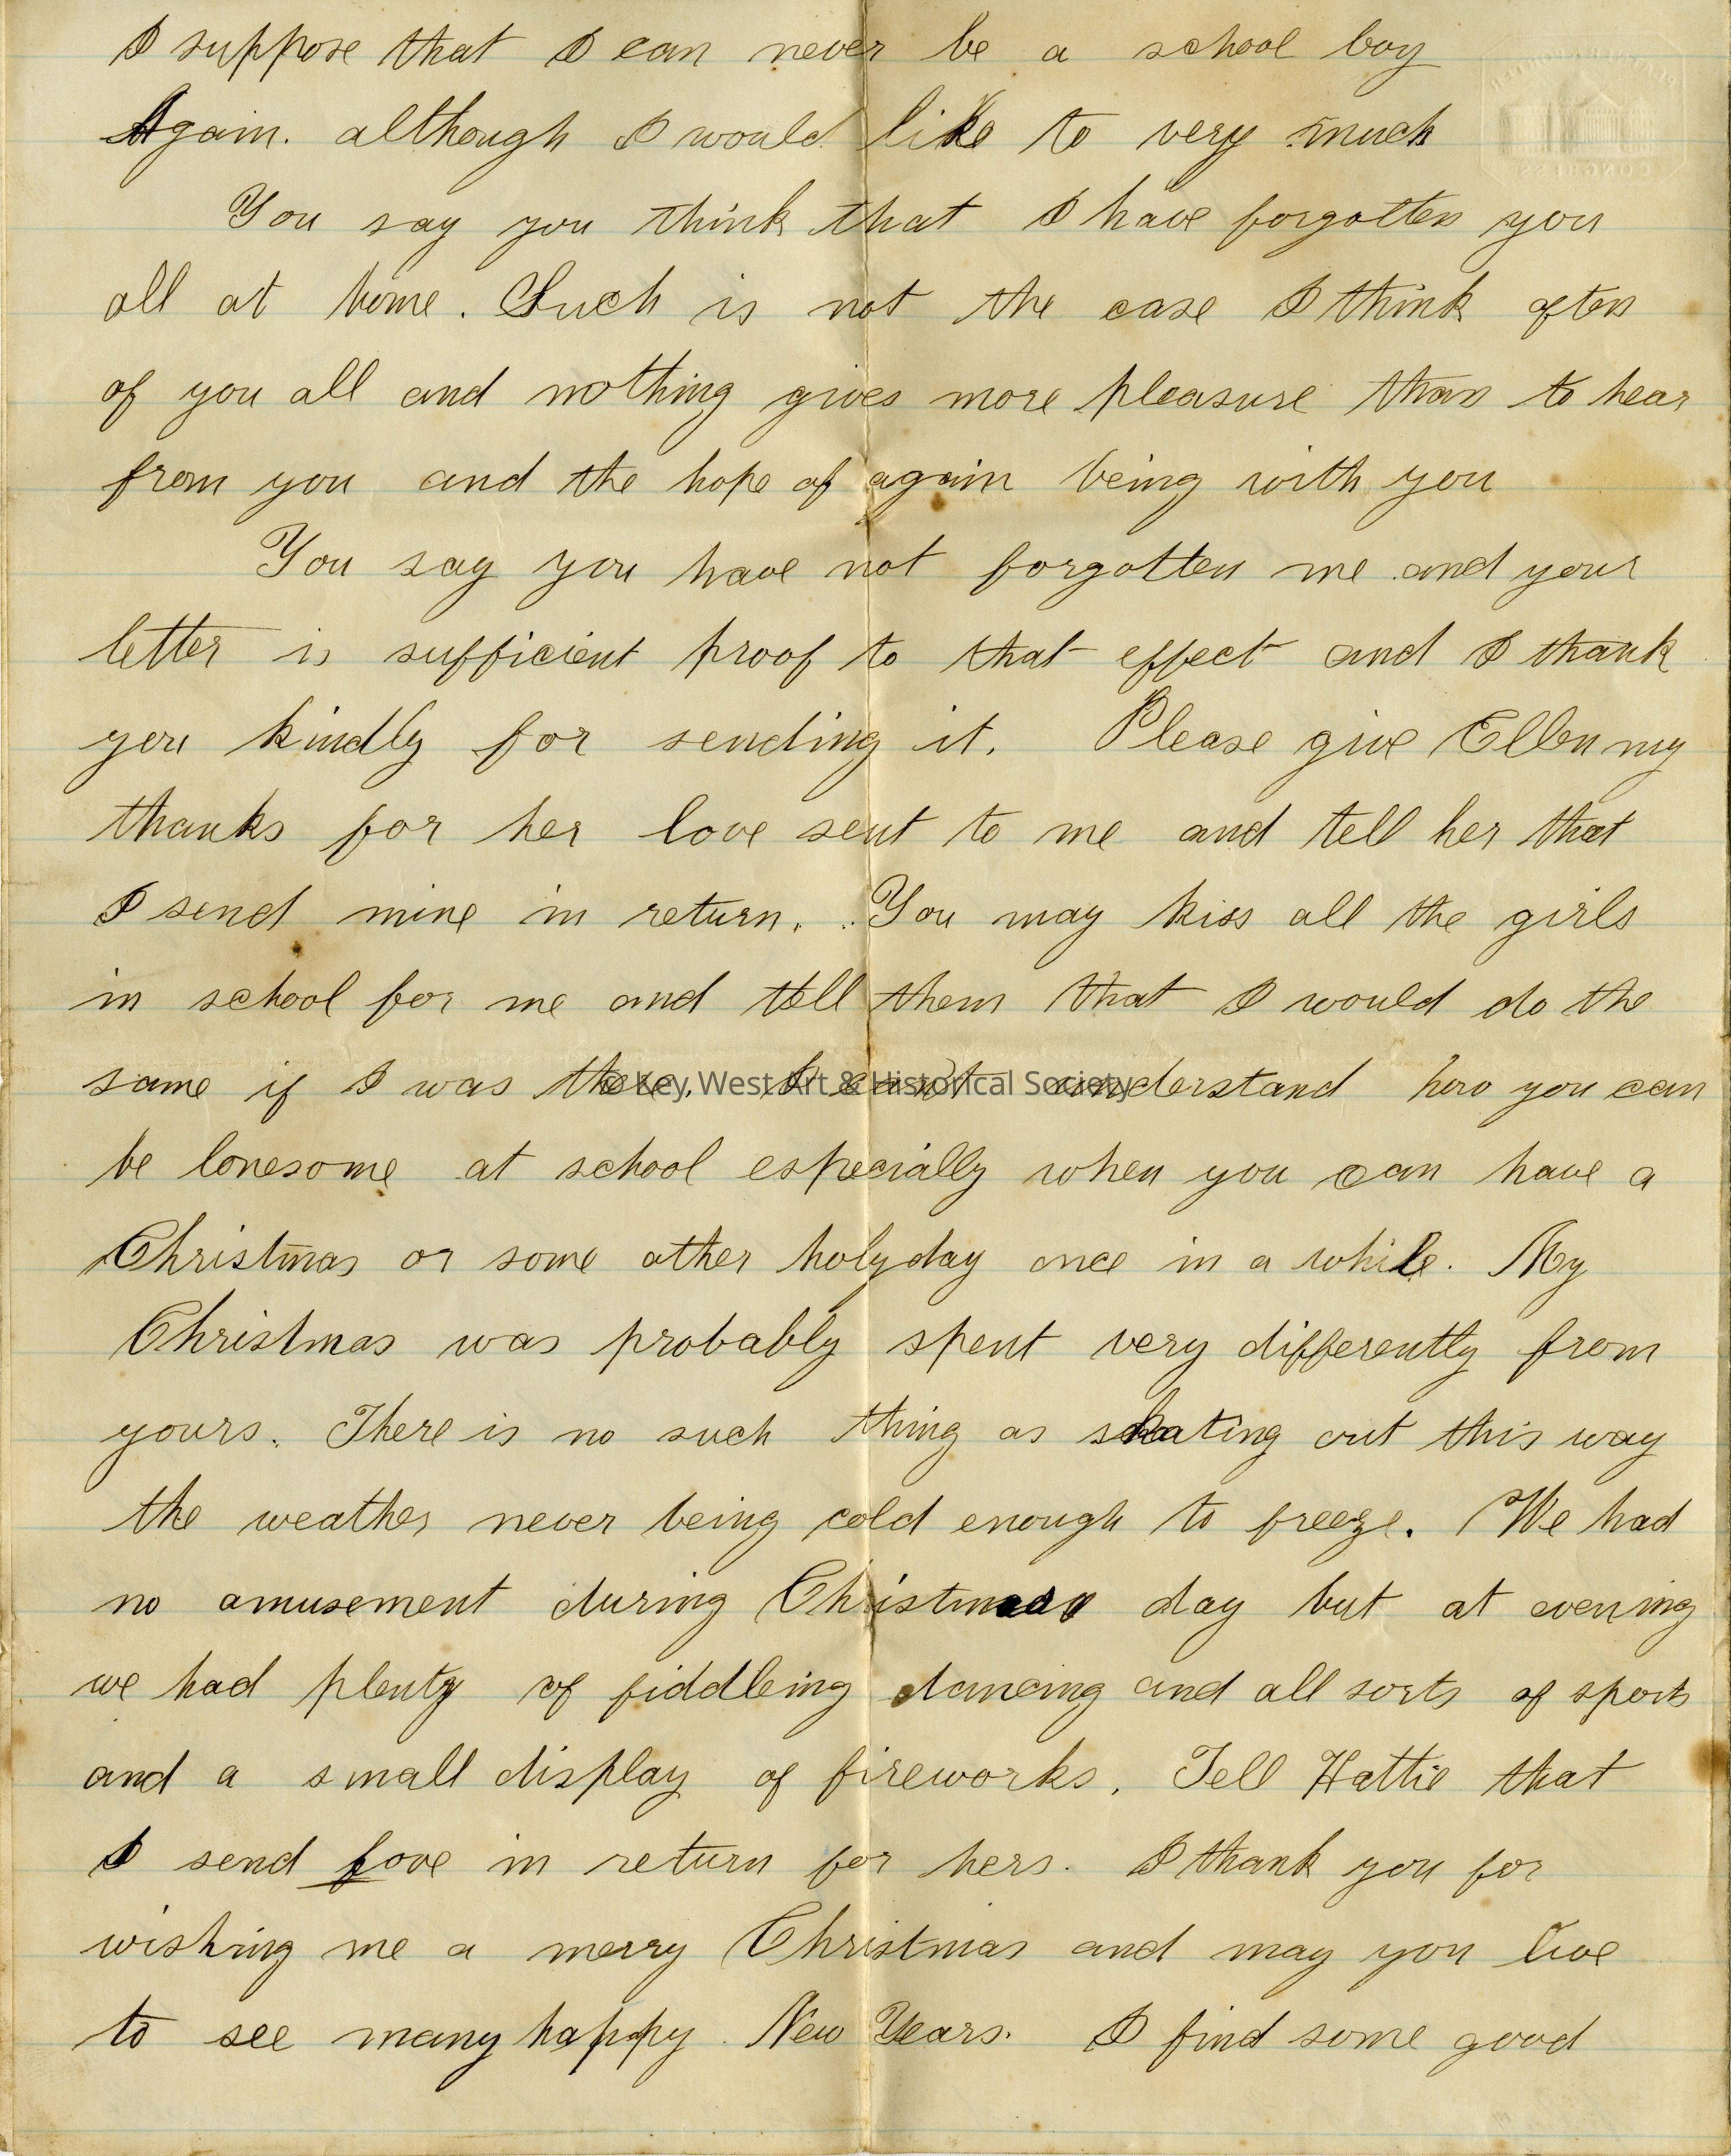 I suppose that I can never be a school boy
Again. although I would like to very much
CONGRESS
You say you think that I have forgotten you
all at home. Such is not the case I think often
of you all and nothing gives more pleasure than to hear
from you and the hope of again being with you
You say you have not forgotten me and your
letter is sufficient proof to that effect and I thank
you kindly for sending it. Please give Ellen my
thanks for her love sent to me and tell her that
I send mine in return. You may kiss all the girls
in school for me and tell them that I would do the
same if I was there. I can't understand how you can
© Key West Art & Historical Society
be lonesome at school especially when you can have a
Christmas or some other holyday once in a while. My
Christmas was probably spent very differently from
yours. There is no such thing as skating out this way
the weather never being cold enough to freeze. We had
no amusement during Christmas day but at evening
we had plenty of fiddleing dancing and all sorts of sports
and a small display of fireworks. Tell Hattie that
I send love in return for hers. I thank you for
wishing me a merry Christmas and may you live
to see many happy New Years. I find some good